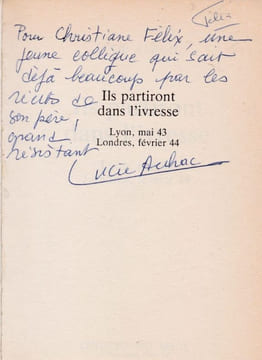 Félix
Pour Christiane Félix, une
jeune collègue qui sait
déjà beaucoup par les
récits de
son père,
grand
résistant
Ils partiront
dans l'ivresse
Lyon, mai 43
Londres, février 44
Lucie Aubrac